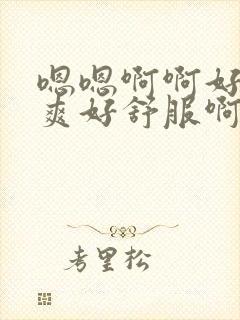 嗯嗯啊啊好
爽好舒服啊
考里松